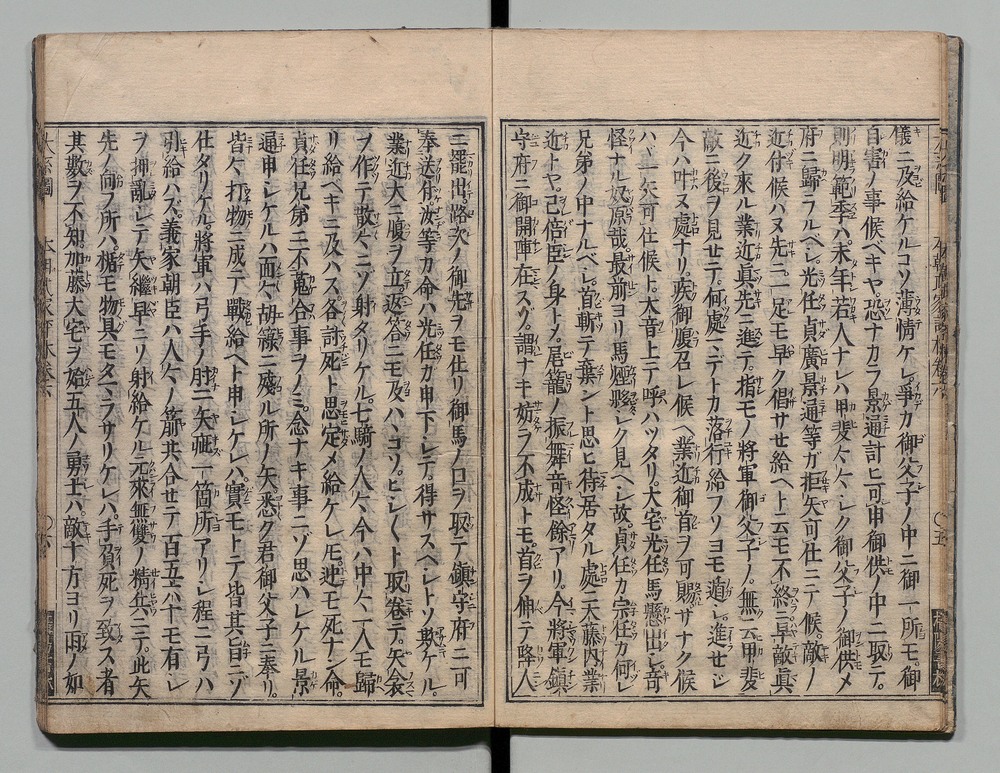 儀ニ及給ケルコソ薄情ケレ爭カ御父子ノ中ニ御一所モ御
自害ノ事候ベキヤ恐ナカラ景通計ヒ可申御供ノ中ニ取テ
則明範季ハ未年若人ナレハ甲斐々々シク御父子ノ御供メ
府ニ歸ラルヘシ光任貞廣景通等ガ拒矢可仕ニテ候敵ノ
近付候ハヌ先ニ一足モ早ク倡サセ給ヘト云モ不終早敵眞
近ク來ル業近眞先ニ進テ指モノ將軍御父子ノ無云甲斐
敵ニ後ヲ見セテ何處マデトカ落行給フソヨモ遁シ進セジ
今ハ叶ヌ處ナリ疾御腹召レ候ヘ業近御首ヲ可賜サナク候
ハヾ一矢可仕候ト大音上テ呼ハツタリ大宅光任馬懸出シ奇
怪ナル奴原哉最前ヨリ馬煙夥シク見ヘシ故貞任カ宗任カ何レ
兄弟ノ中ナルベシ首斬テ棄ント思ヒ待居タル處ニ大藤内業
近トヤ己倍臣ノ身トメ尾籠ノ振舞奇怪餘アリ今將軍鎭
守府ニ御開陣在スヲ謂ナキ妨ヲ不成トモ首ヲ伸テ降人
ニ罷出路次ノ御先ヲモ仕リ御馬ノ口ヲ取テ鎭守府ニ可
奉送付汝等カ命ハ光任カ申下シテ得サスヘシトソ欺ケル
業近大ニ腹ヲ立返答ニモ及ハヽコソヒシ〳〵ト取卷テ矢衾
ヲ作テ散々ニソ射タリケル七騎ノ人々今ハ中々一人モ歸
リ給ヘキニ及ハス各討死ト思定メ給ケレ𪜈迚モ死ナン命
貞任兄弟ニ不蒐合事ヲノミ念ナキ事ニゾ思ハレケル景
通申シケルハ面々胡簶ニ殘ル所ノ矢悉ク君御父子ニ奉リ
皆々打物ニ成テ戰給ヘト申シケレハ實モトテ皆其旨ニゾ
仕タリケル將軍ハ弓手ノ肘ニ矢疵一箇所アリシ程ニ弓ハ
引給ハズ義家朝臣ハ人々ノ箭共合セテ百五六十モ有シ
ヲ押亂シテ矢繼早ニソ射給ケル元來無雙ノ精兵ニテ此矢
先ノ向フ所ハ楯モ物具モタマラサリケレハ手負死ヲ致ス者
其數ヲ不知加藤大宅ヲ始五人ノ勇士ハ敵十方ヨリ雨ノ如